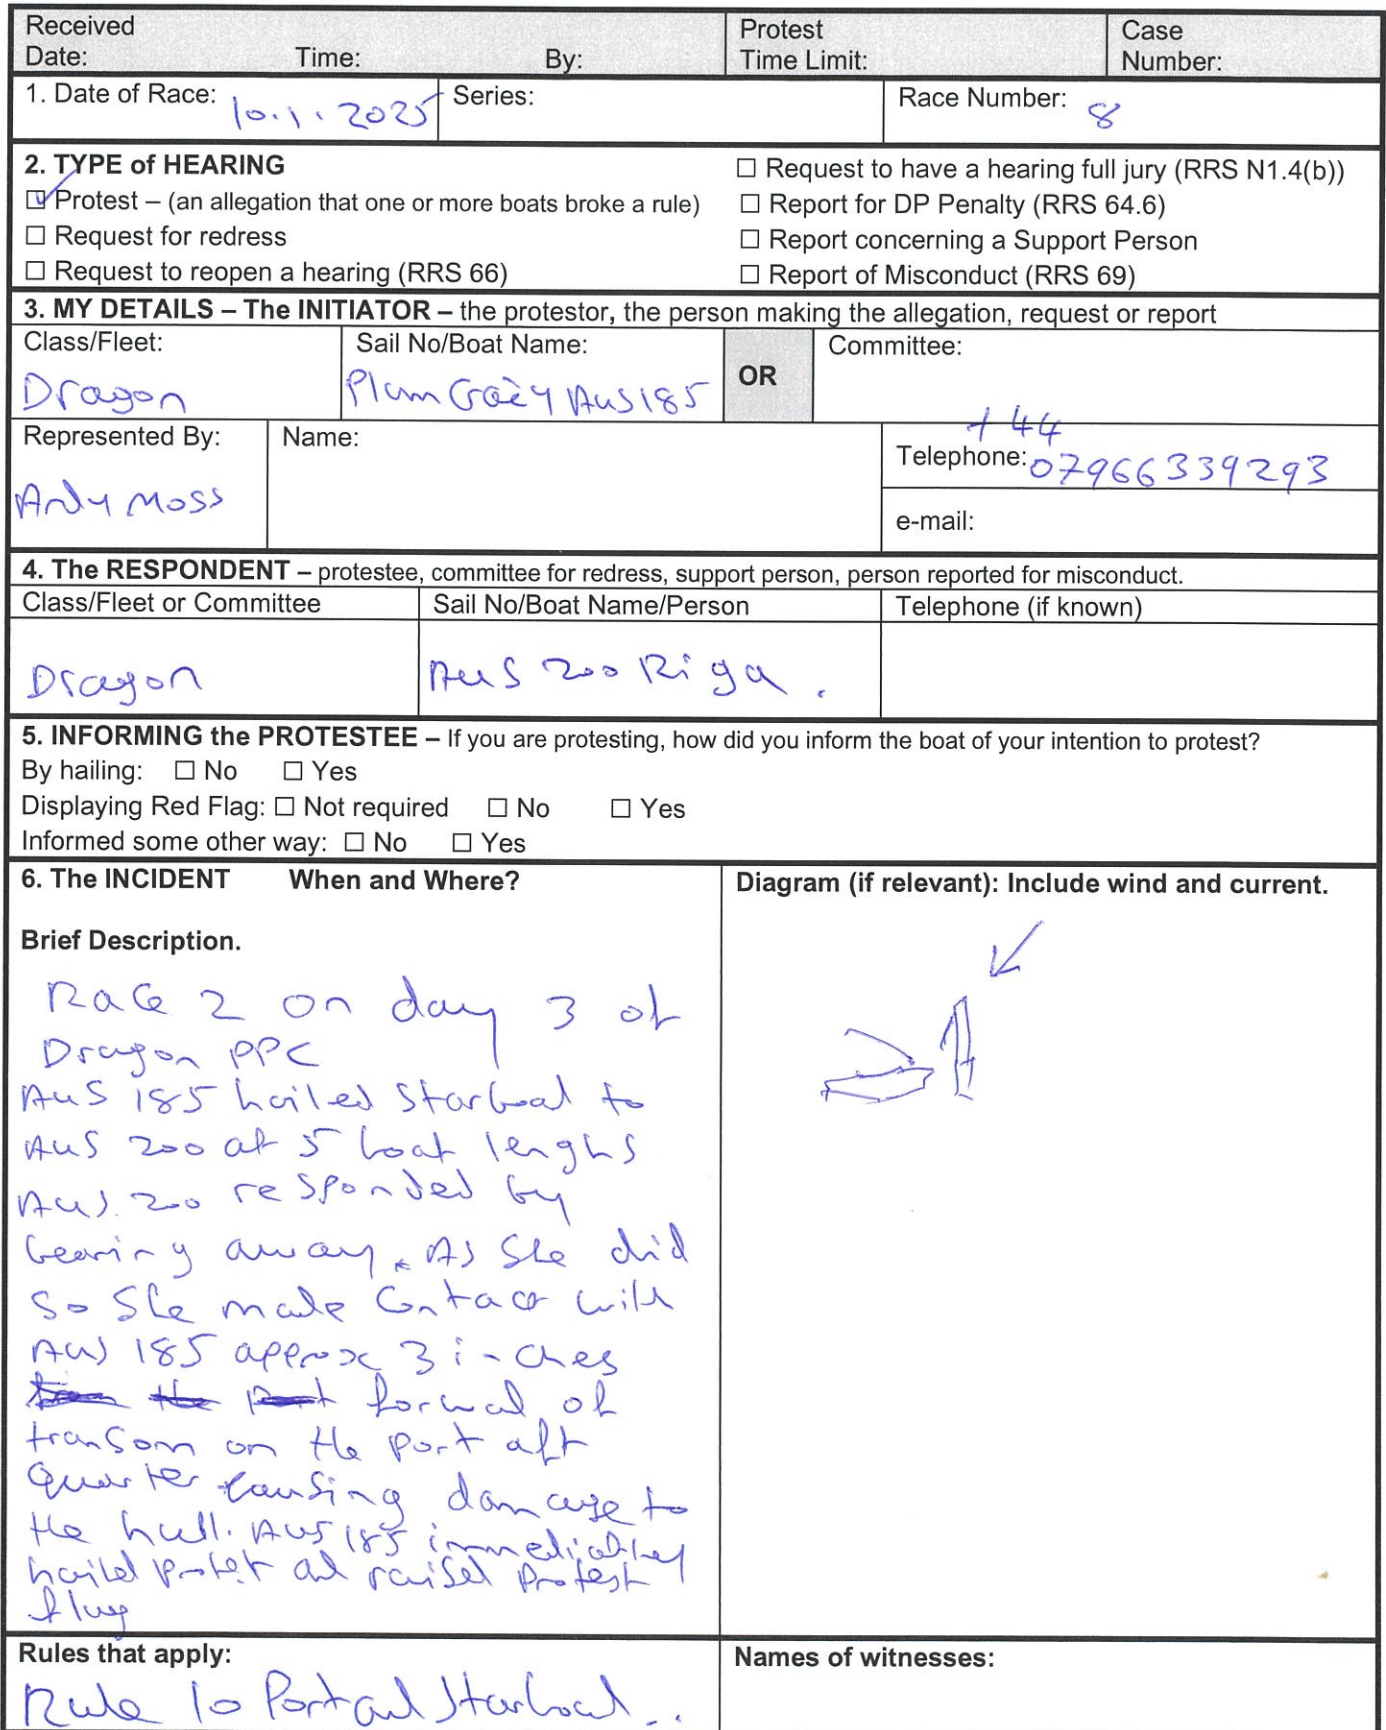 Received
Date: Time: By:
Protest
Time Limit:
Case
Number:
1. Date of Race: 10.1.2025
Series:
Race Number: 8
2. TYPE of HEARING
☑ Protest – (an allegation that one or more boats broke a rule)
☐ Request for redress
☐ Request to reopen a hearing (RRS 66)
☐ Request to have a hearing full jury (RRS N1.4(b))
☐ Report for DP Penalty (RRS 64.6)
☐ Report concerning a Support Person
☐ Report of Misconduct (RRS 69)
3. MY DETAILS – The INITIATOR – the protestor, the person making the allegation, request or report
Class/Fleet:
Dragon
Sail No/Boat Name:
Plum AUS185
OR
Committee:
Represented By:
Andy Moss
Name:
+44
Telephone: 07966339293
e-mail:
4. The RESPONDENT – protestee, committee for redress, support person, person reported for misconduct.
Class/Fleet or Committee
Sail No/Boat Name/Person
Telephone (if known)
Dragon
Aus 200 Riga.
5. INFORMING the PROTESTEE – If you are protesting, how did you inform the boat of your intention to protest?
By hailing: ☐ No ☐ Yes
Displaying Red Flag: ☐ Not required ☐ No ☐ Yes
Informed some other way: ☐ No ☐ Yes
6. The INCIDENT When and Where?
Brief Description.
Race 2 on day 3 of
Dragon PPC
Aus 185 hailed Starboad to
Aus 200 at 5 boat lenghs
Aus. 200 responded by
bearing away. As She did
so She made Contact with
Aus 185 approx 3 inches
forward of
transom on the port aft
quarter causing damage to
the hull. Aus 185 immediatley
haild protet and raised Protest
flug
Diagram (if relevant): Include wind and current.
Rules that apply:
Rule 10 Port and Starboad..
Names of witnesses: